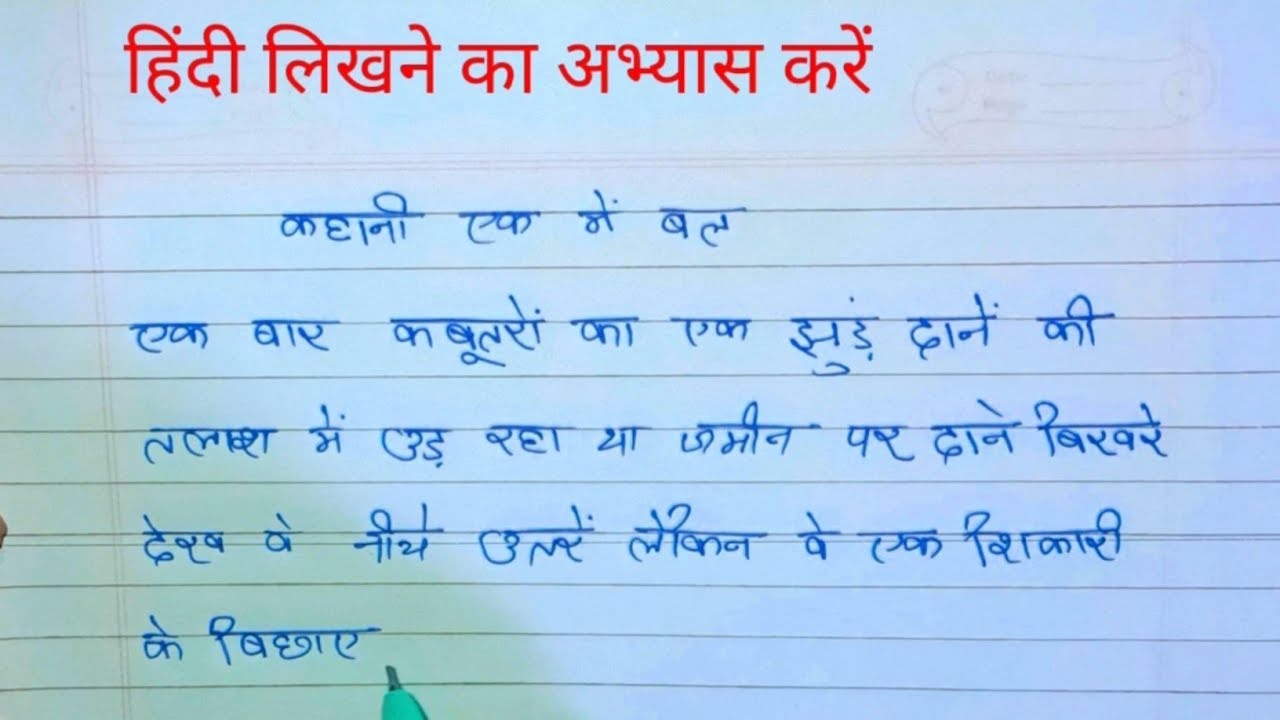 हिंदी लिखने का अभ्यास करें
कहानी एक में बल
एक बार कबूतरों का एक झुंड़ दानें की
तलाश में उड़ रहा था जमीन पर दाने बिखरे
देख वे नीचे उतरें लेकिन वे एक शिकारी
के बिछाए